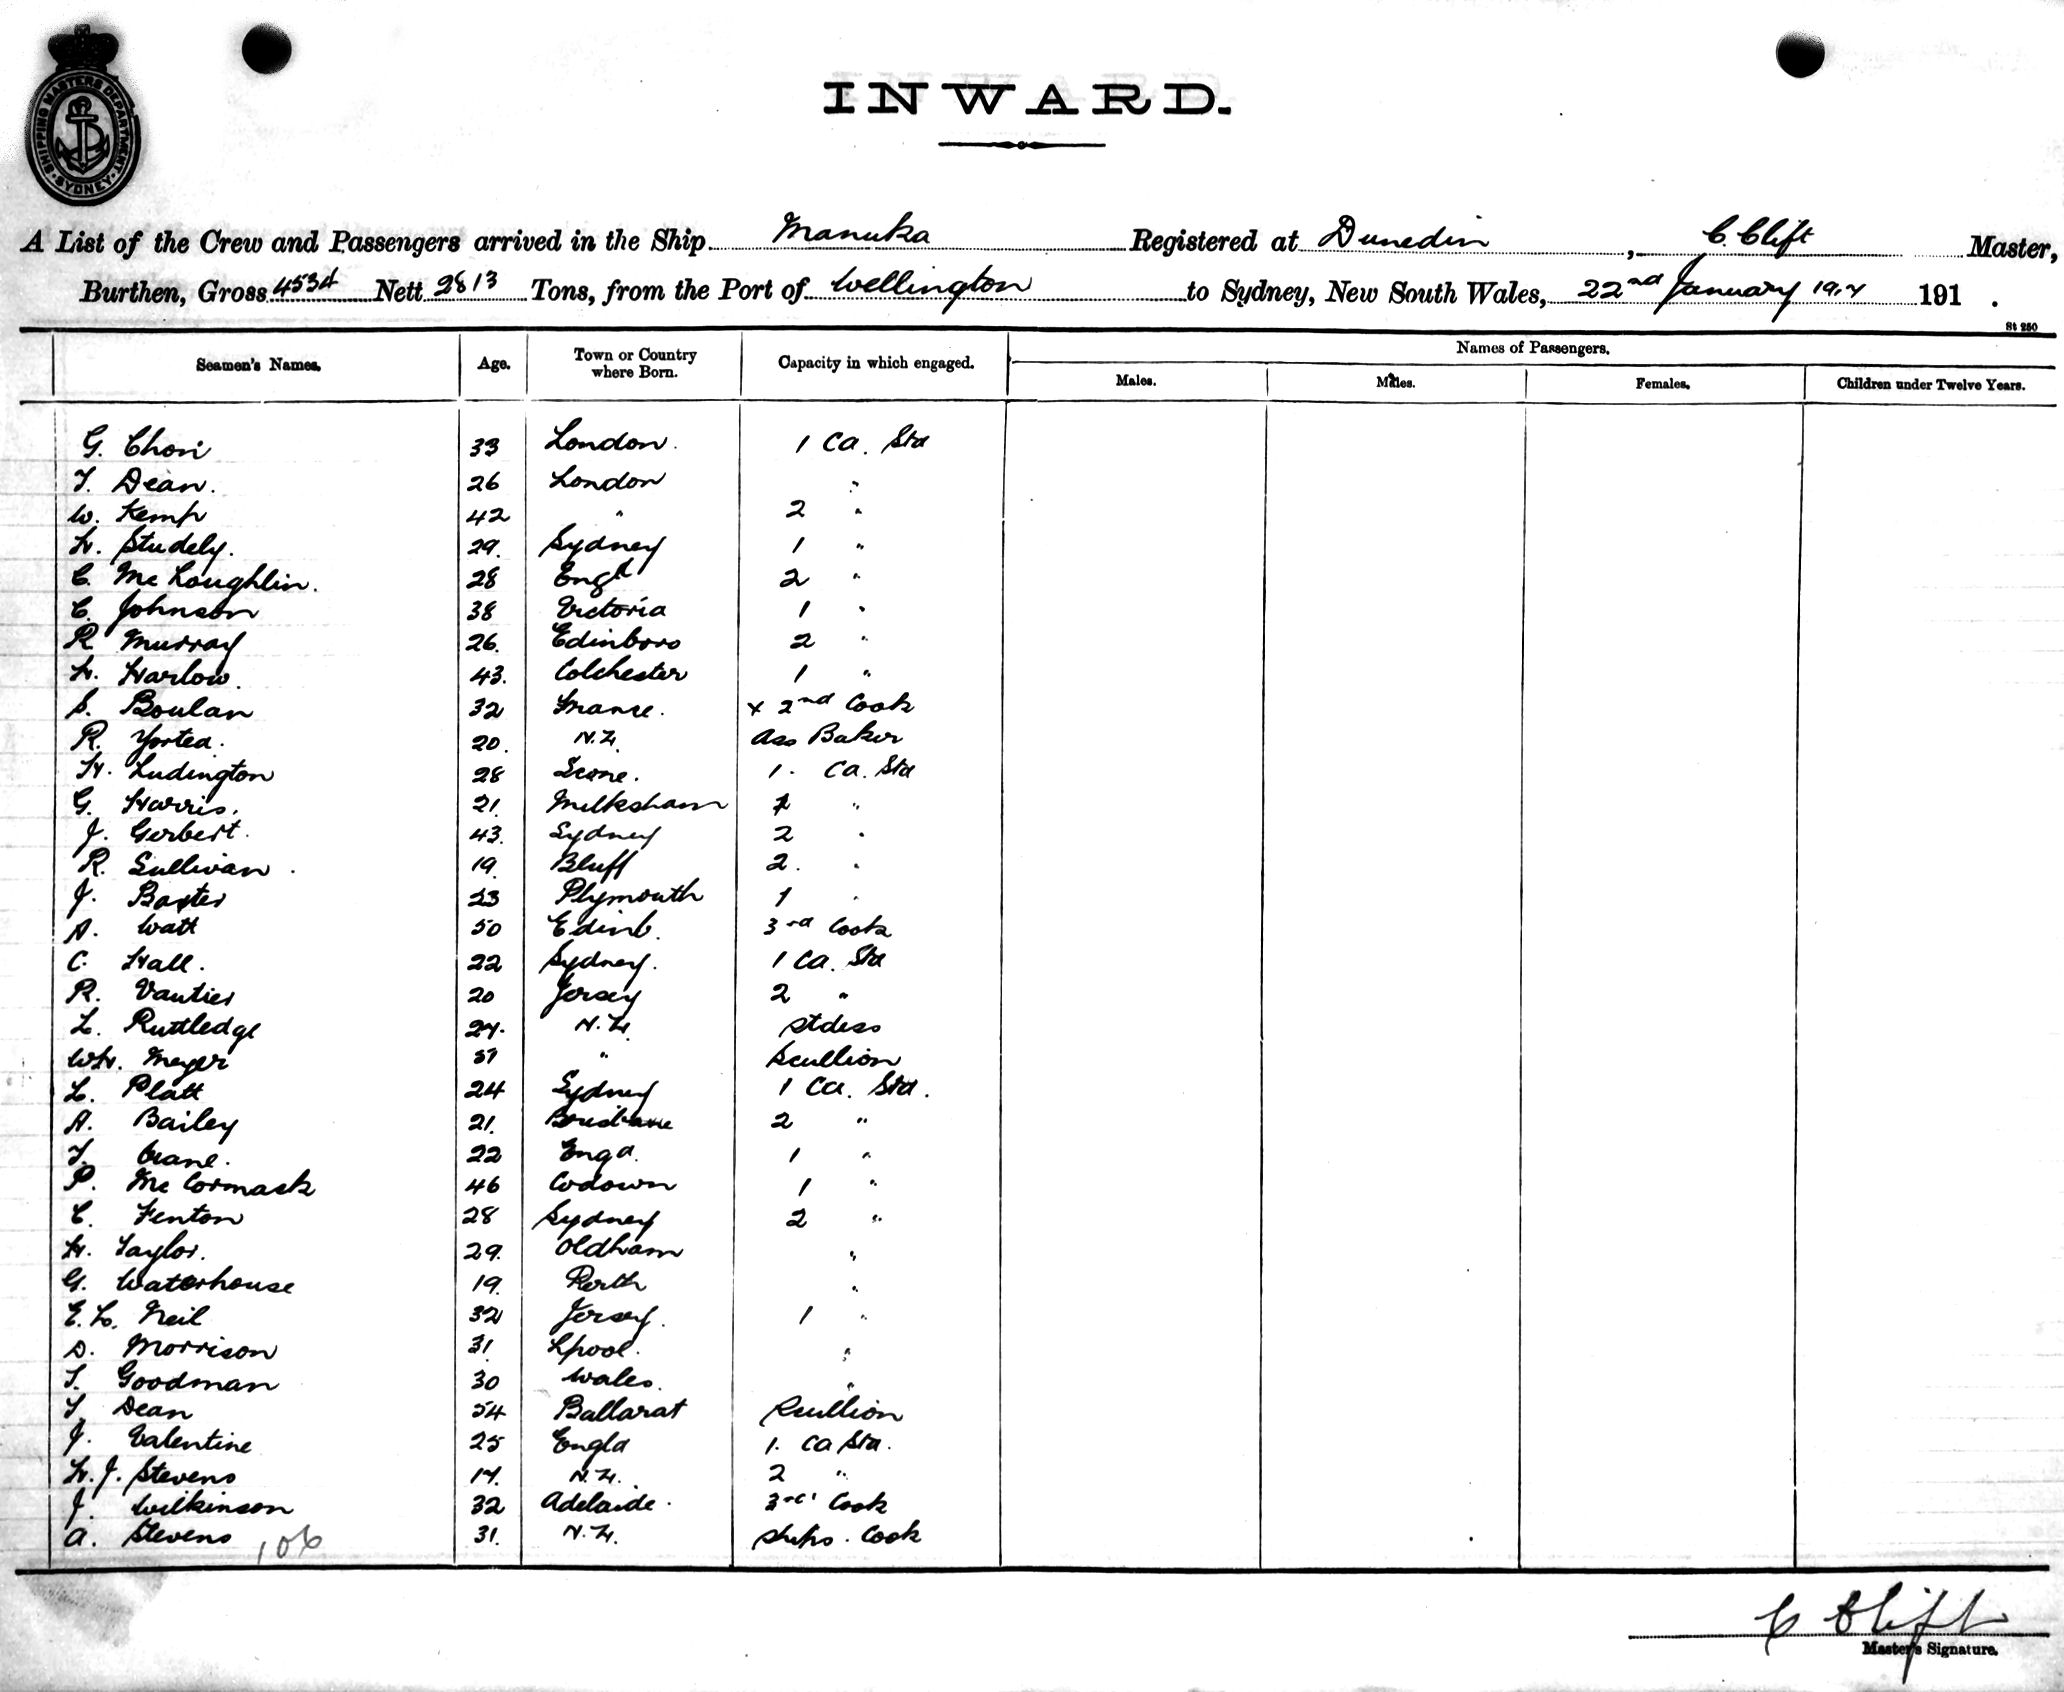 SHIPPING MASTERS DEPARTMENT SYDNEY
INWARD.
A List of the Crew and Passengers arrived in the Ship Manuka Registered at Dunedin, C. Clift Master,
Burthen, Gross 4534 Nett 2813 Tons, from the Port of Wellington to Sydney, New South Wales, 22nd January 191
St 250
Seamen's Names. Age. Town or Country where Born. Capacity in which engaged. Names of Passengers.
Males. Males. Females. Children under Twelve Years.
G. Chori 33 London. 1 Ca. Std
T. Dean. 26 London "
W. Kemp 42 " 2 "
H. Studely. 29. Sydney 1 "
C. McLoughlin. 28 Engd 2 "
C. Johnson 38 Victoria 1 "
R Murray 26. Edinboro 2 "
H. Harlow. 43. Colchester 1 "
S. Boulan 32 France. x 2nd Cook
R. 20. N.Z. Ass Baker
H. Ludington 28 Scone. 1. Ca. Std
G. Harris. 21. Milksham 1 "
J. Gerbert. 43. Sydney 2 "
R. Sullivan. 19. Bluff 2. "
J. Baxter 23 Plymouth 1 "
A. Watt 50 Edinb. 3rd Cook
C. Hall. 22 Sydney. 1 Ca. Std
R. Vautier 20 Jersey 2 "
L. Ruttledge N.Z. Stdess
WH. Meyer " Scullion
L. Platt 24 Sydney 1 Ca. Std.
A. Bailey 21. Brisbane 2 "
T. Crane. 22 Engd. 1 "
P. McCormack 46 1 "
C. Fenton 28 Sydney 2 "
H. Taylor. 29. Oldham "
G. Waterhouse 19. Perth "
E. L. Neil 32 Jersey. 1 "
D. Morrison 31. Lpool. "
T. Goodman 30 Wales. "
T. Dean 54 Ballarat Scullion
J. Valentine 25 Engld 1. Ca Std.
H. J. Stevens 17. N.Z. 2 "
J. Wilkinson 32 Adelaide. 3rd Cook
A. Stevens 31. N.Z. Ships. Cook
106
C Clift
Master's Signature.